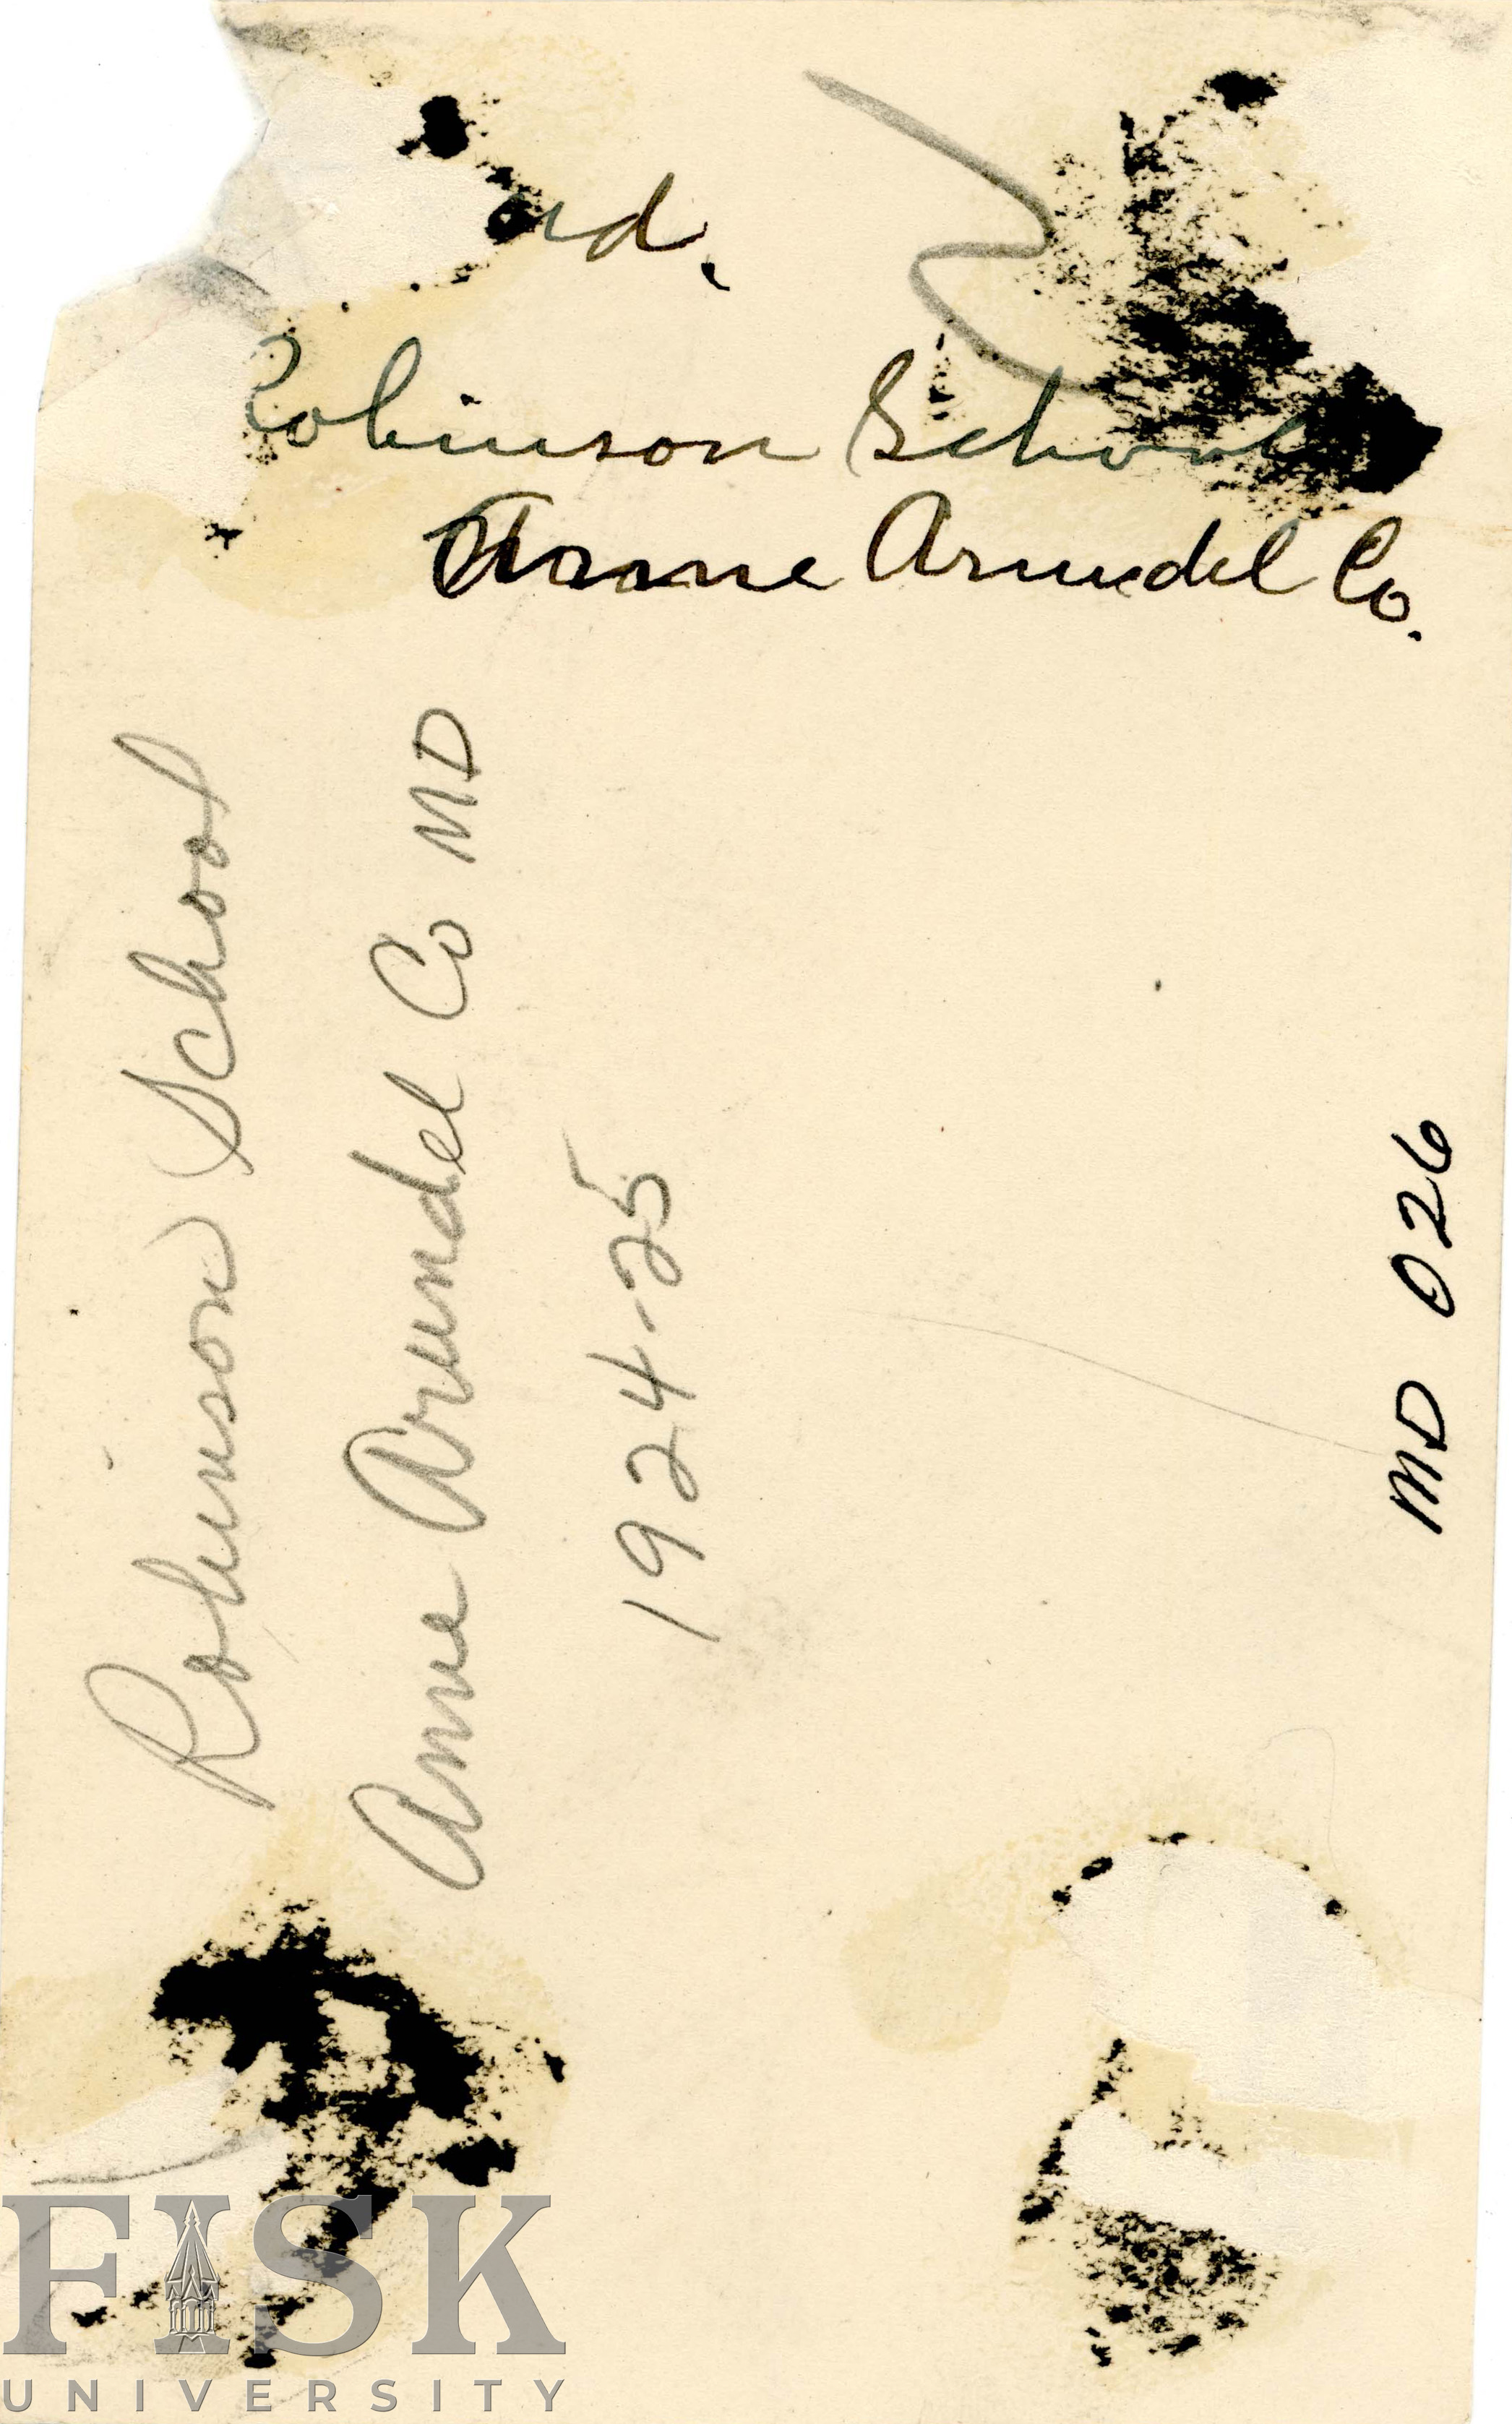 Md.
Robinson School
Anne Arundel Co.
Robinson School
Anne Arundel Co MD
1924-25
MD 026
FISK
UNIVERSITY